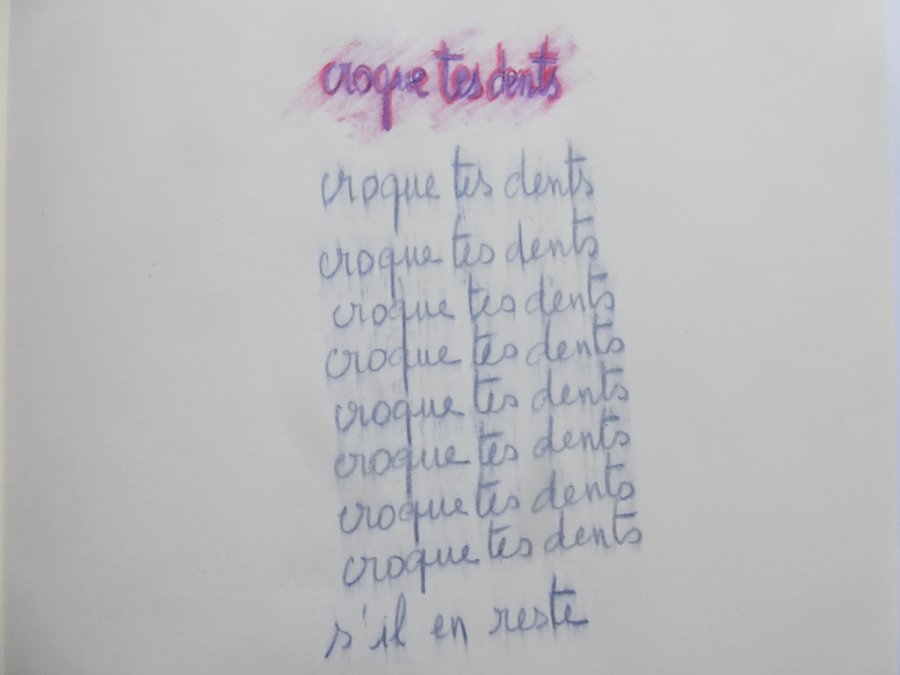 croque tes dents
croque tes dents
croque tes dents
croque tes dents
croque tes dents
croque tes dents
croque tes dents
croque tes dents
croque tes dents
s'il en reste